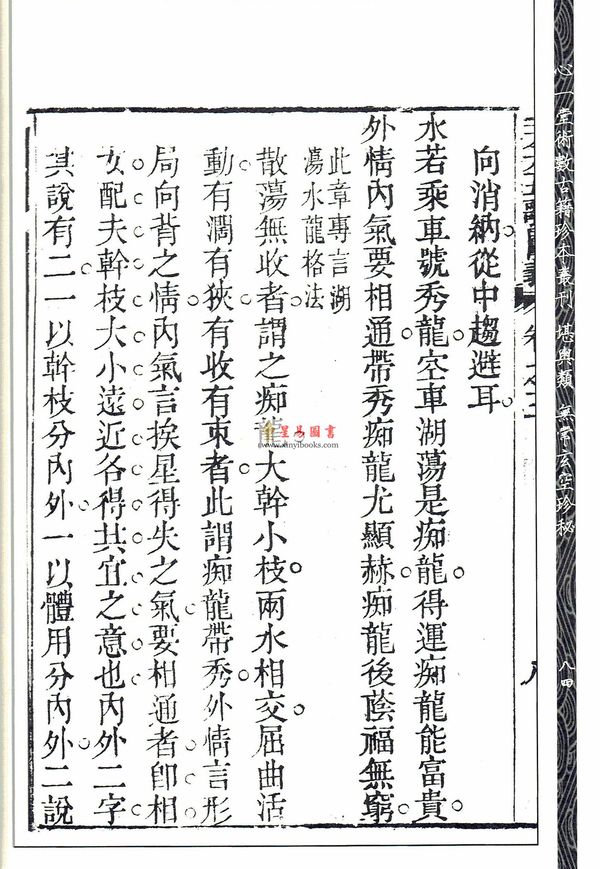 心一堂術數古籍珍本叢刊 堪輿類 無常玄空珍秘
八四
向消納從中趨避耳
水若乘車號秀龍空車湖蕩是痴龍得運痴龍能富貴
外情內氣要相通帶秀痴龍尤顯赫痴龍後蔭福無窮
此章專言湖
蕩水龍格法
散蕩無收者謂之痴龍大幹小枝兩水相交屈曲活
動有濶有狹有收有束者此謂痴龍帶秀外情言形
局向背之情內氣言挨星得失之氣要相通者卽相
女配夫幹枝大小遠近各得其宜之意也內外二字
其說有二一以幹枝分內外一以體用分內外二說
星易圖書
www.xinyibooks.com